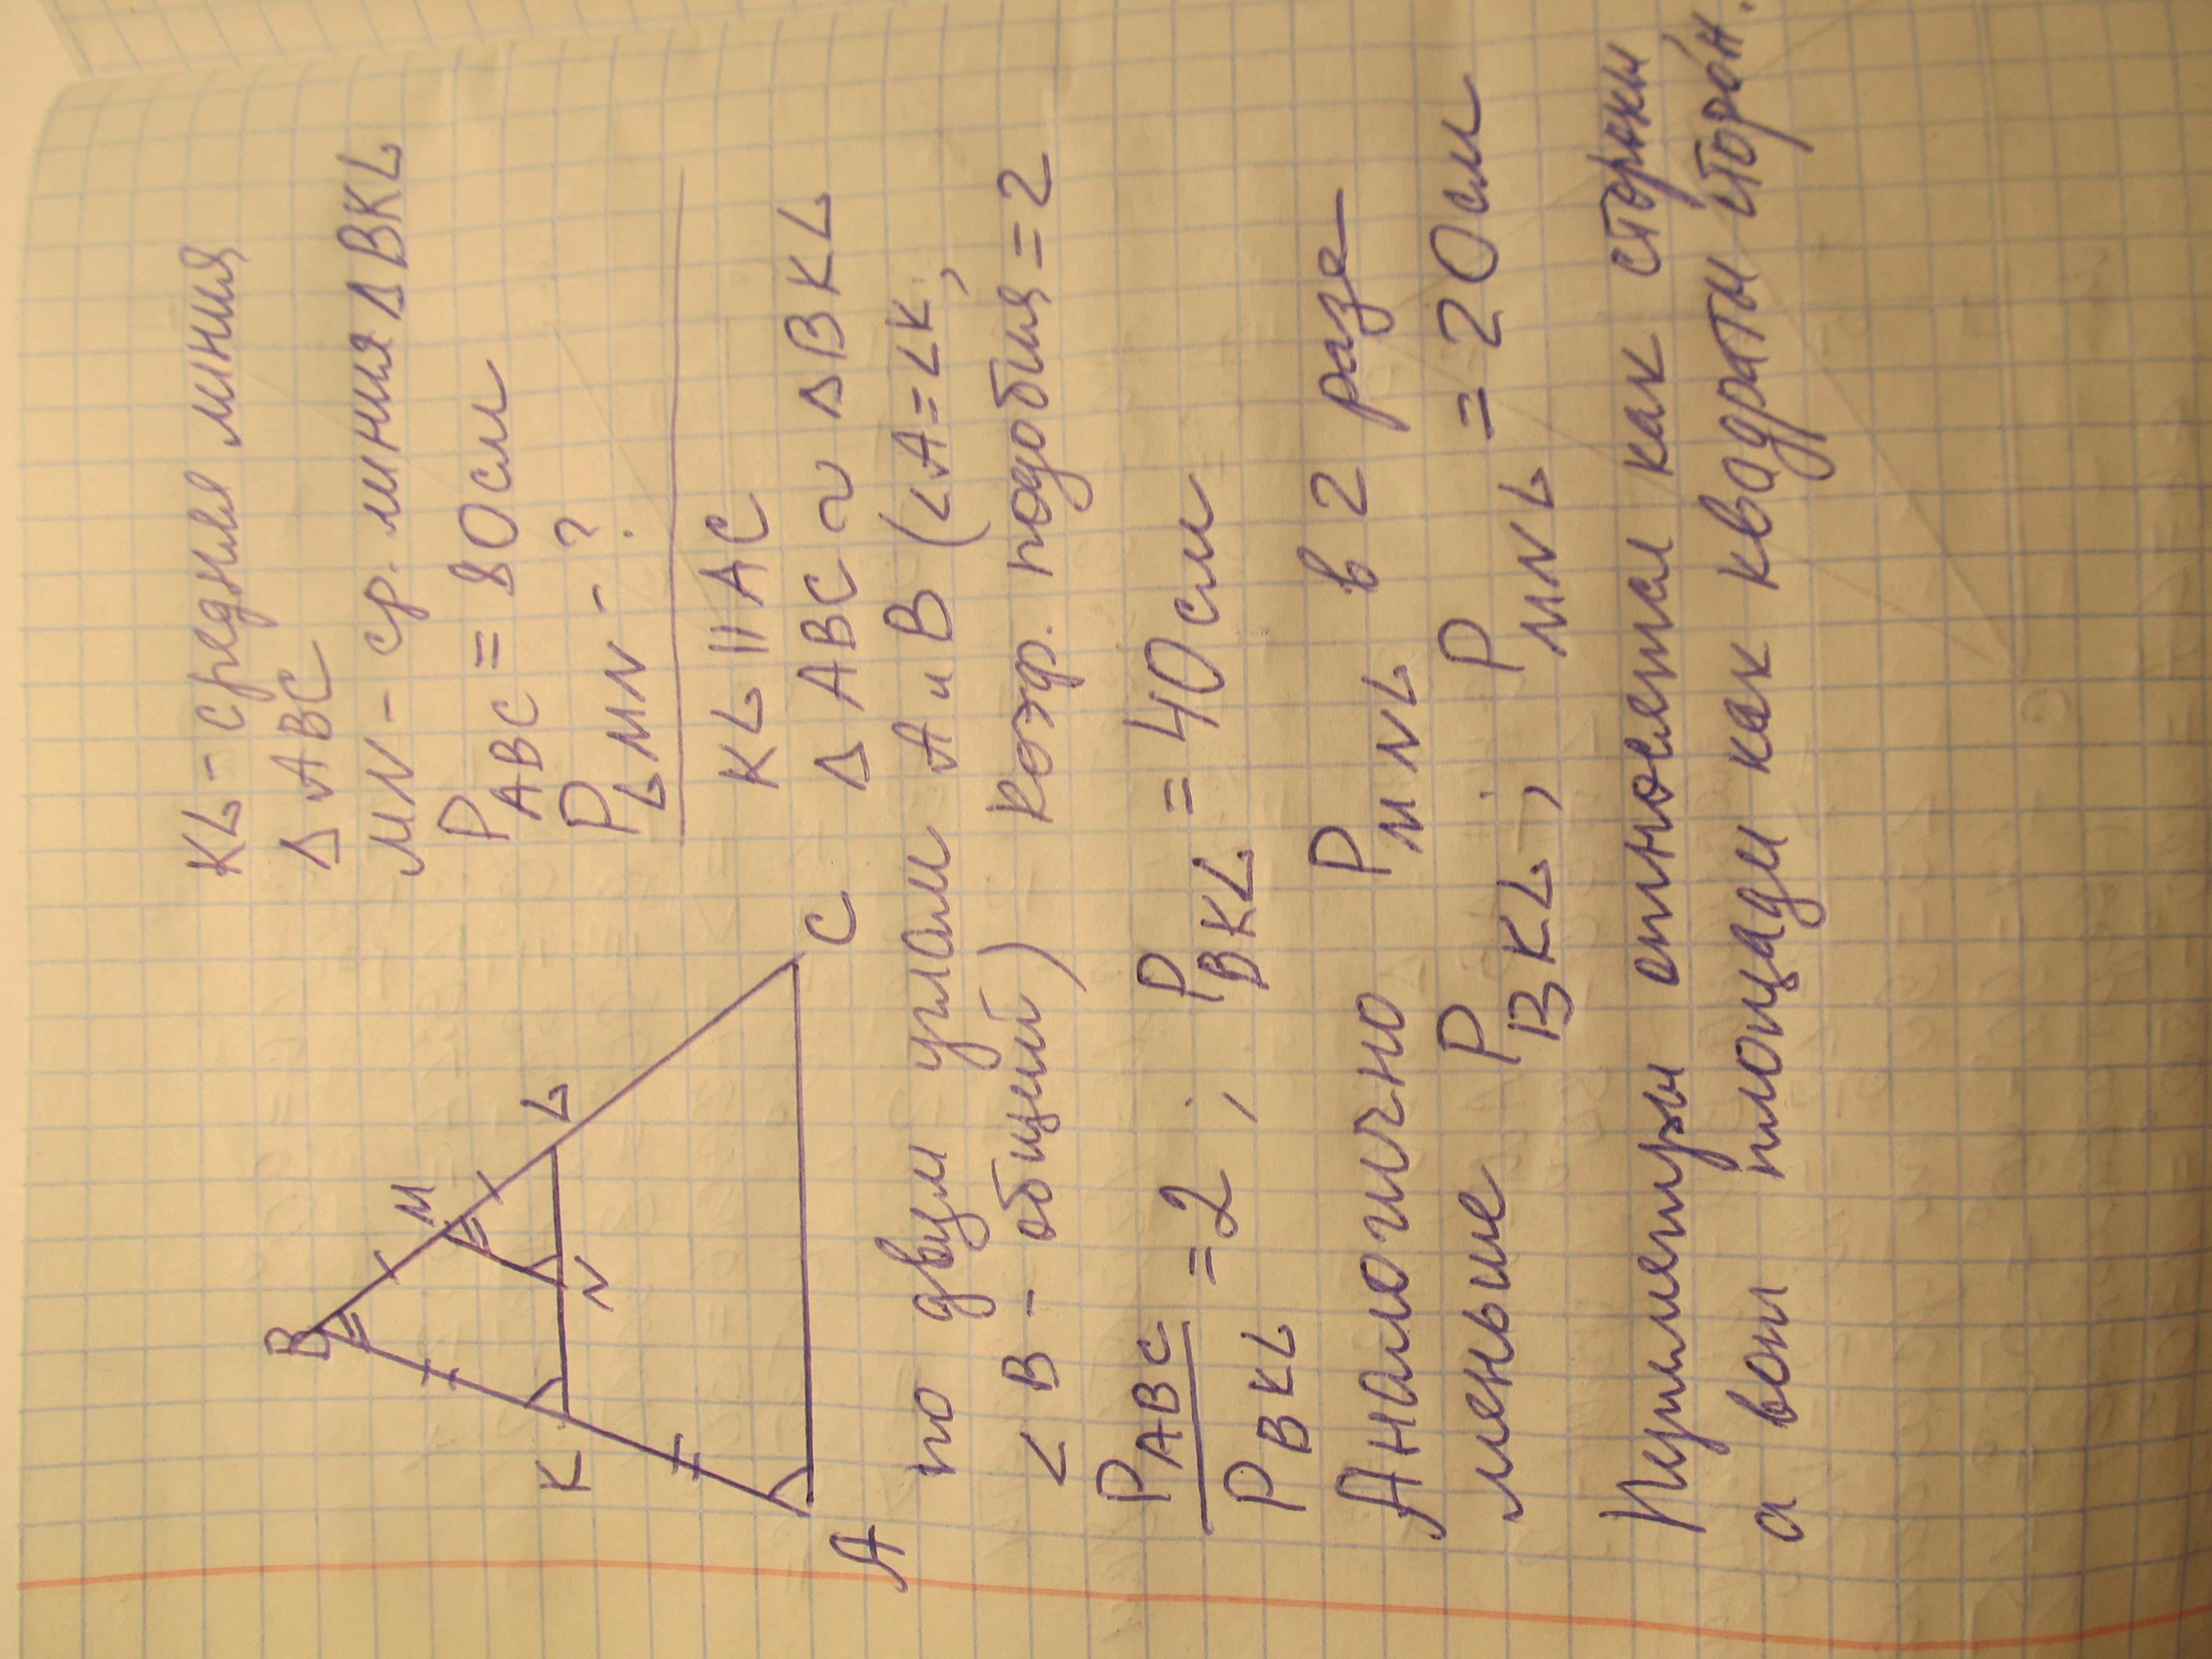 KL - средняя линия
Δ ABC
MN - ср. линия Δ BKL
P ABC = 80 см
P LMN - ?
B
M
L
K
N
A
C
KL || AC
Δ ABC ~ Δ BKL
по двум углам A и B (<A = <K;
< B - общий) коэф. подобия = 2
P ABC / P BKL = 2 ; P BKL = 40 см
Аналогично P MNL в 2 раза
меньше P BKL ; P MNL = 20 см
Периметры относятся как стороны
а вот площади как квадраты сторон.